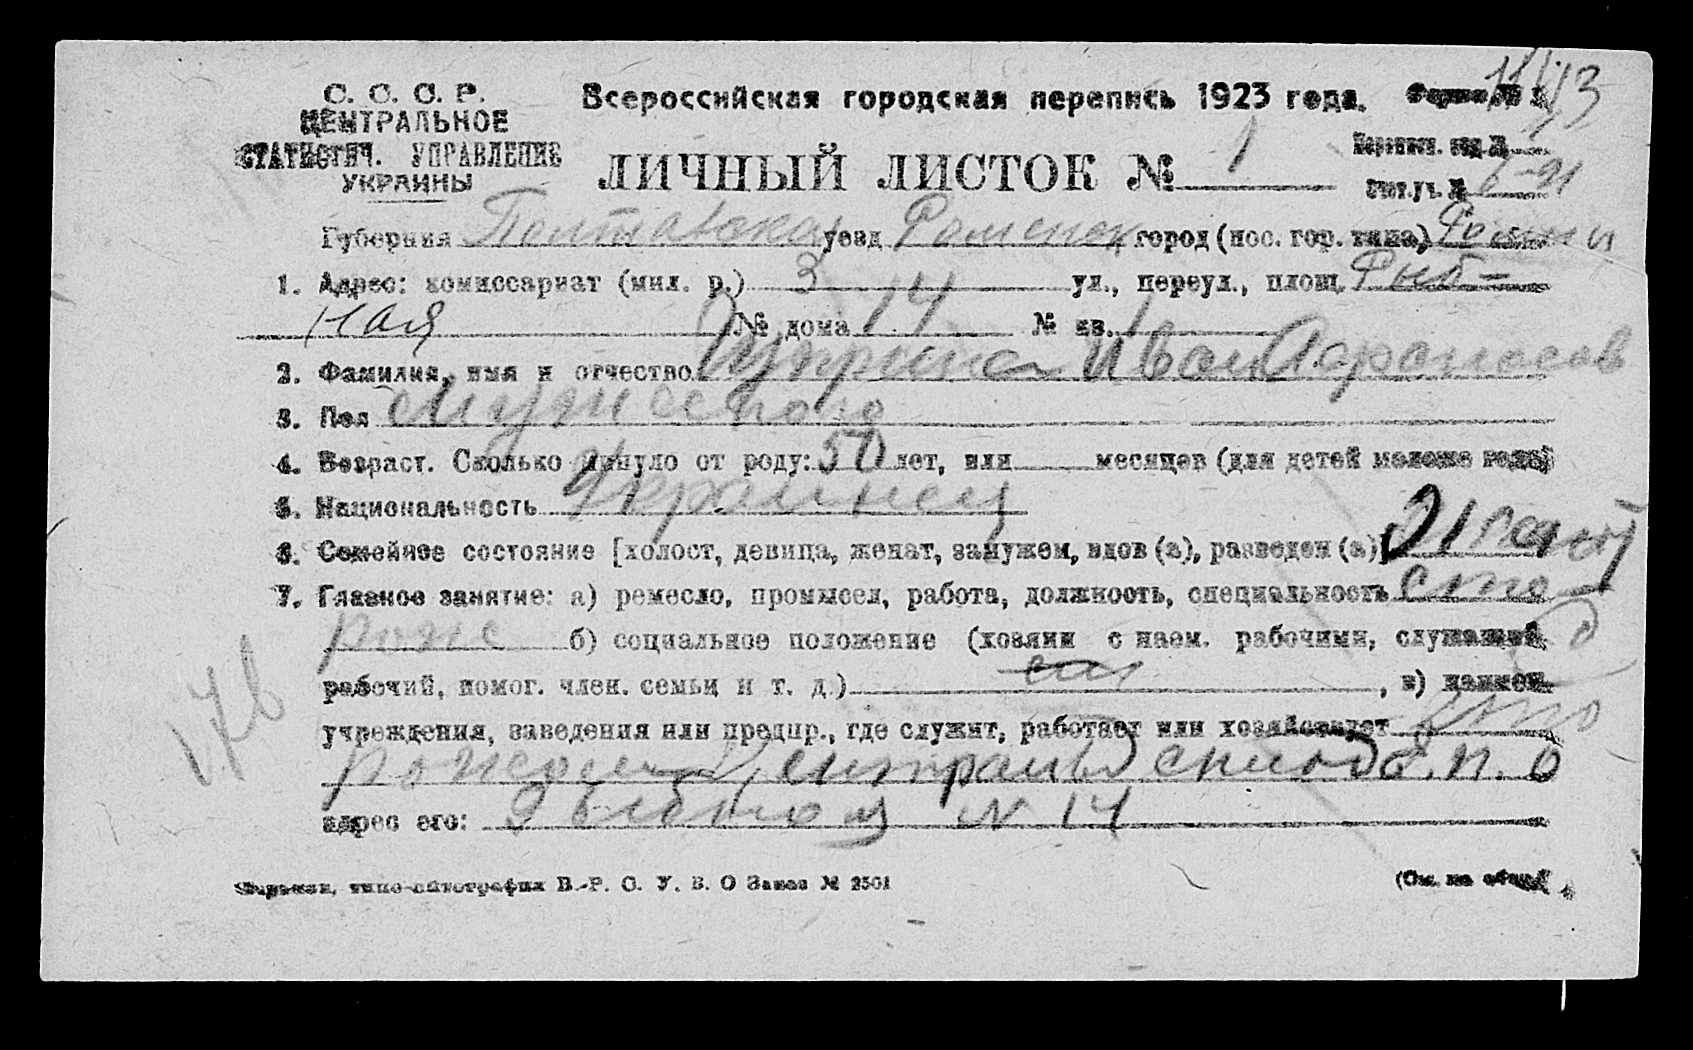 С. С. С. Р.
ЦЕНТРАЛЬНОЕ
СТАТИСТИЧ. УПРАВЛЕНИЕ
УКРАИНЫ
Всероссийская городская перепись 1923 года.
Форма №
ЛИЧНЫЙ ЛИСТОК № 1
Счет. уч. №
Губерния Полтавская уезд Роменск город (пос. гор. типа) Ромны
1. Адрес: комиссариат (мил. р.) 3 ул., переул., площ. Рыб-
ная № дома 14 № кв. 1
2. Фамилия, имя и отчество Иван Афанасов
3. Пол мужского
4. Возраст. Сколько минуло от роду: 50 лет, или месяцев (для детей моложе года)
5. Национальность Украинец
6. Семейное состояние [холост, девица, женат, замужем, вдов (а), разведен (а)] женат
7. Главное занятие: а) ремесло, промысел, работа, должность, специальность сто
рож б) социальное положение (хозяин с наем. рабочими, служащий,
рабочий, помог. член. семьи и т. д.) , в) наимен.
учреждения, заведения или предпр., где служит, работает или хозяйствует
адрес его: № 14
176
Харьков, типо-литография В.-Р. С. У. В. О Заказ № 2501
(См. на обор.)